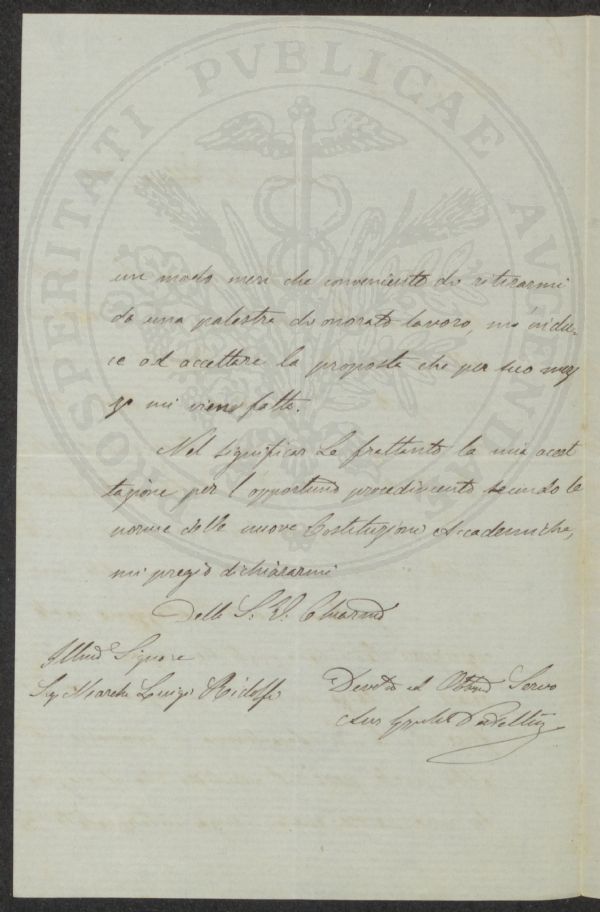 PROSPERITATI PVBLICAE AVGENDAE
un modo meri che conveniente di ritirarmi
da una palestra di onorato lavoro, m'indu-
ce ad accettare la proposta che per suo mez
zo mi viene fatta.
Nel significarLe frattanto la mia accet
tazione per l'opportuno procedimento secondo le
norme delle nuove Costituzioni Accademiche,
mi pregio dichiararmi
Della S. V. Chiarma
Illmo Signore
Sig Marche Luigi Ridolfi
Devmo ed Obbmo Servo